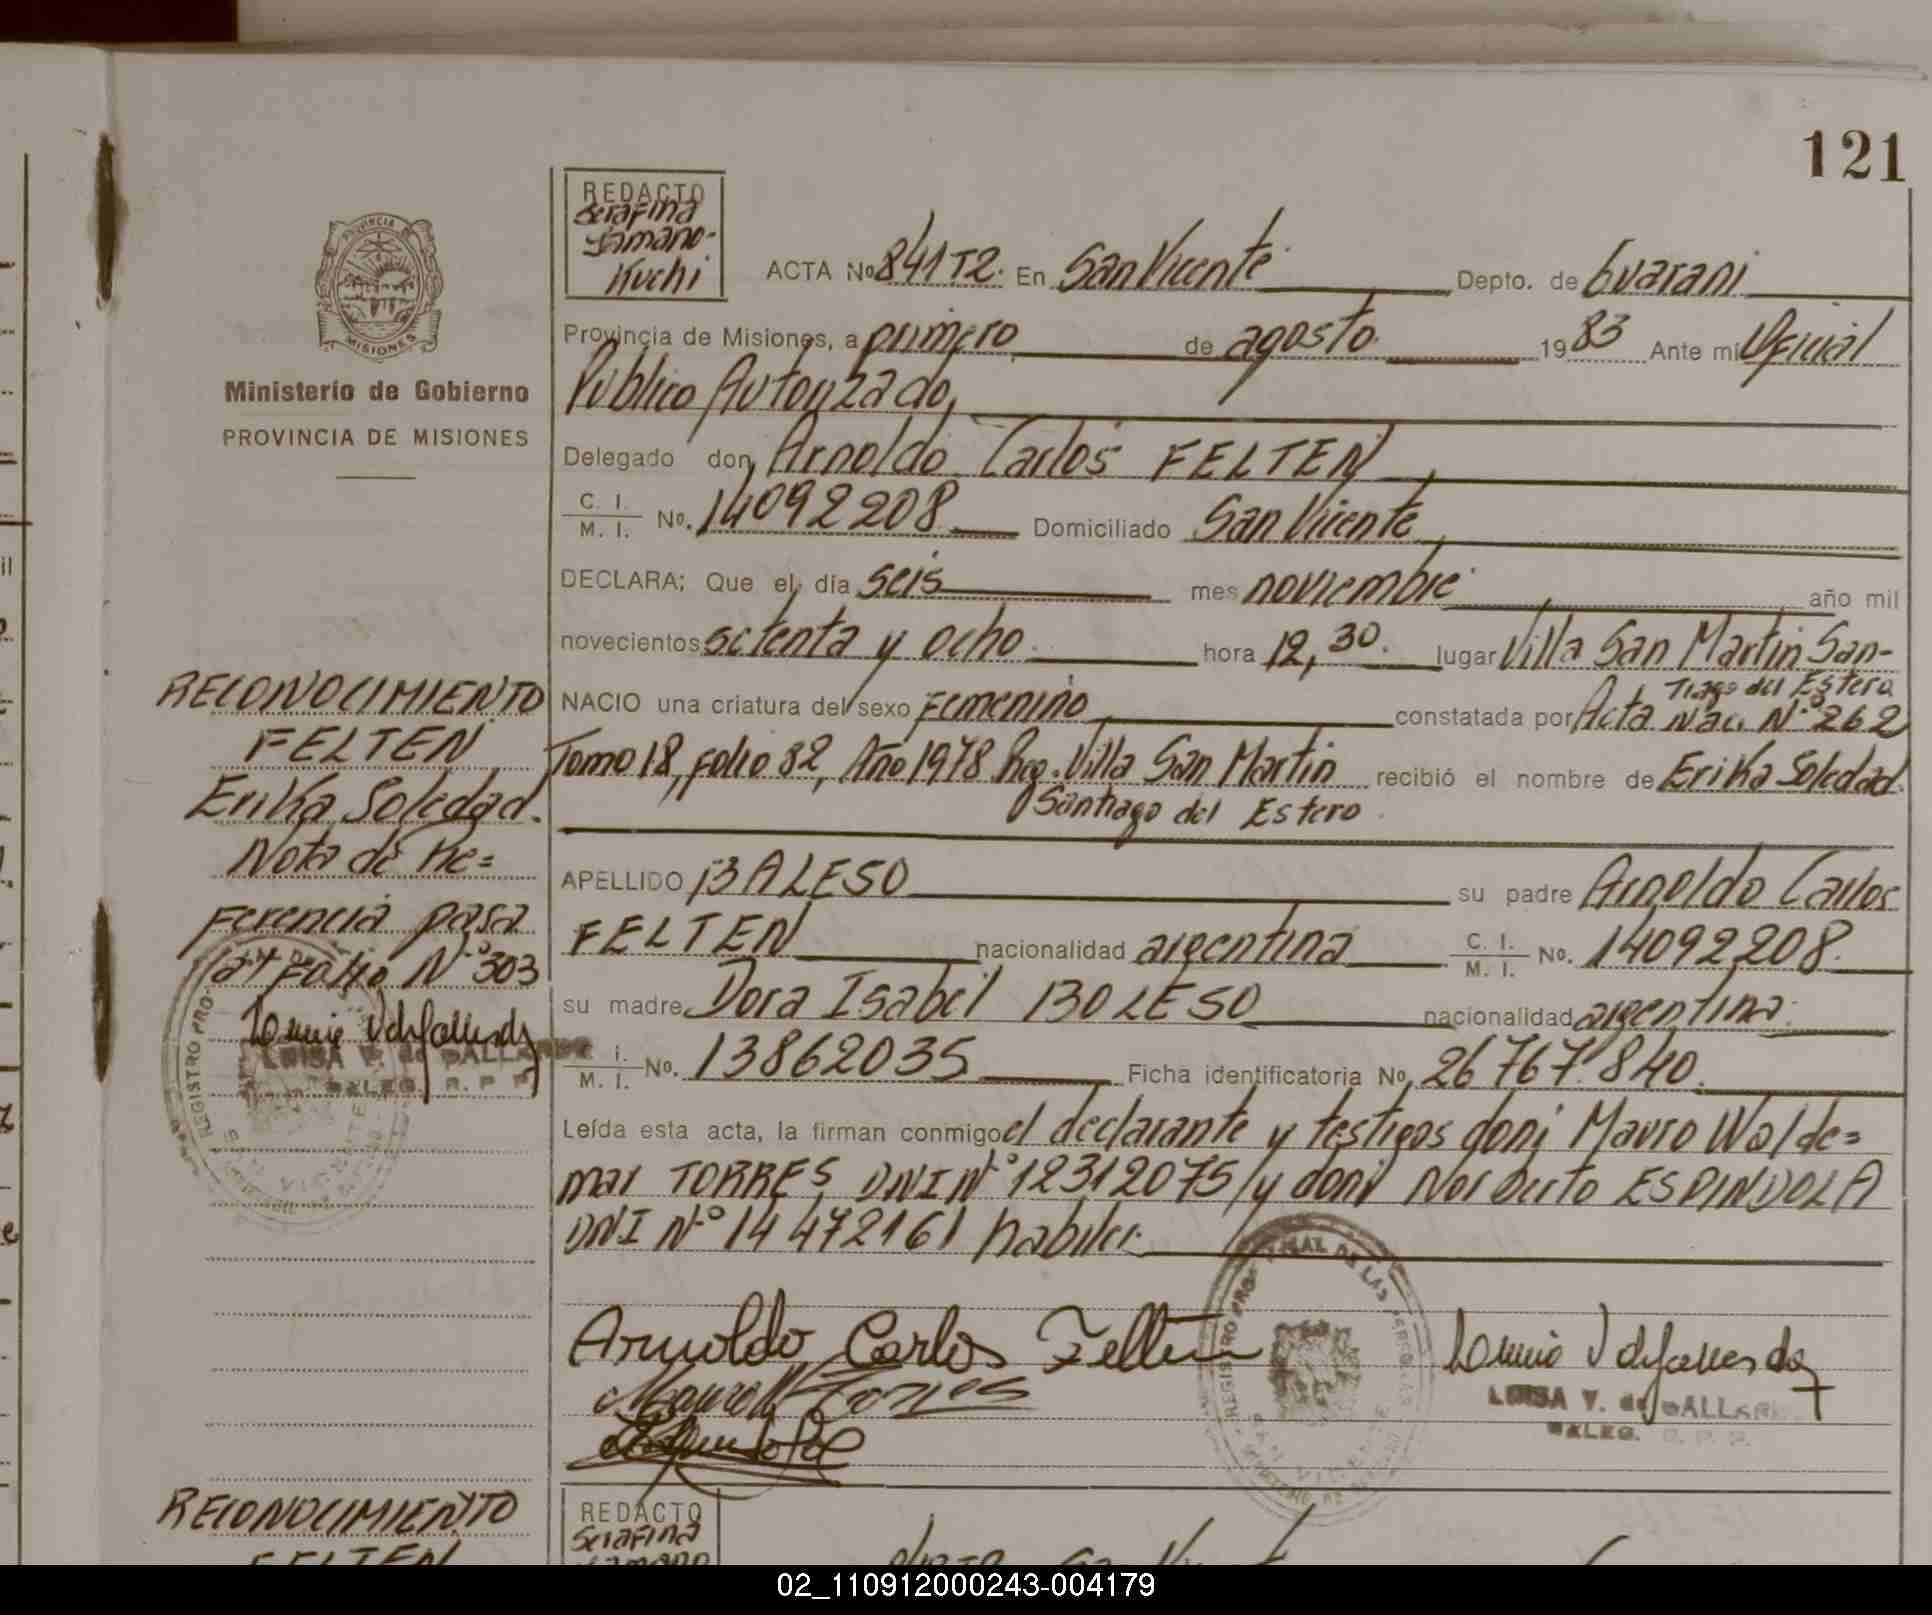 121
REDACTO
Serafina
Yamano-
Kuchi
PROVINCIA DE
MISIONES
Ministerio de Gobierno
PROVINCIA DE MISIONES
ACTA No 841T2. En San Vicente Depto. de Guarani
Provincia de Misiones, a primero de agosto 1983 Ante mi Oficial
Publico Autorizado,
Delegado don, Arnoldo Carlos FELTEN,
C. I.
M. I. No. 14092208 Domiciliado San Vicente,
DECLARA; Que el día seis mes noviembre año mil
novecientos setenta y ocho hora 12,30. lugar Villa San Martin San-
tiago del Estero
NACIO una criatura del sexo Femenino, constatada por Acta Nac. N° 262
Tomo 18, folio 82, Año 1978 Reg. Villa San Martin recibió el nombre de Erika Soledad.
Santiago del Estero.
APELLIDO BALESO su padre Arnoldo Carlos
FELTEN nacionalidad argentina C. I.
M. I. No. 14092208.
su madre Dora Isabel BOLESO nacionalidad argentina.
I.
M. I. No. 13862035 Ficha identificatoria No, 26767.840.
Leída esta acta, la firman conmigo el declarante y testigos don; Mauro Walde=
mar TORRES, DNI N° 12312075 y don; Norberto ESPINDOLA
DNI N° 14472161 habiles.
RECONOCIMIENTO
FELTEN
Erika Soledad.
Nota de Re=
ferencia pasa
al Folio N° 303
LUISA V. de DALLA
DALEG. R. P. P.
REGISTRO PRO
SAN VICENTE
Arnoldo Carlos Felten
Mauro W Torres
LUISA V. de DALLA
DALEG. R. P. P.
REGISTRO PRO DE LAS PERSONAS
SAN VICENTE
RECONOCIMIENTO
FELTEN
REDACTO
Serafina
Yamano
02_110912000243-004179